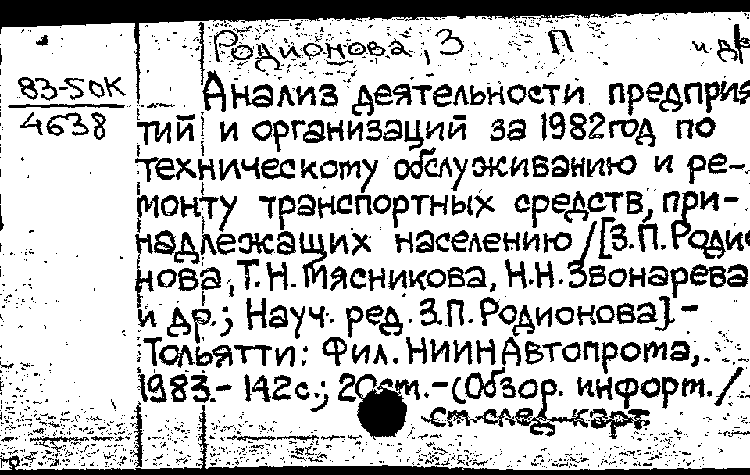 Родионова, З П и др
83-5ОК
4638
Анализ деятельности предприя
тий и организаций за 1982 год по
техническому обслуживанию и ре-
монту транспортных средств, при-
надлежащих населению /[З.П.Родио
нова, Т.Н. Мясникова, Н.Н.Звонарева
и др.; Науч. ред. З.П.Родионова].-
Тольятти: Фил. НИИНАвтопрома,
1983.- 142с.; 20см.-(Обзор. информ./
см след карт